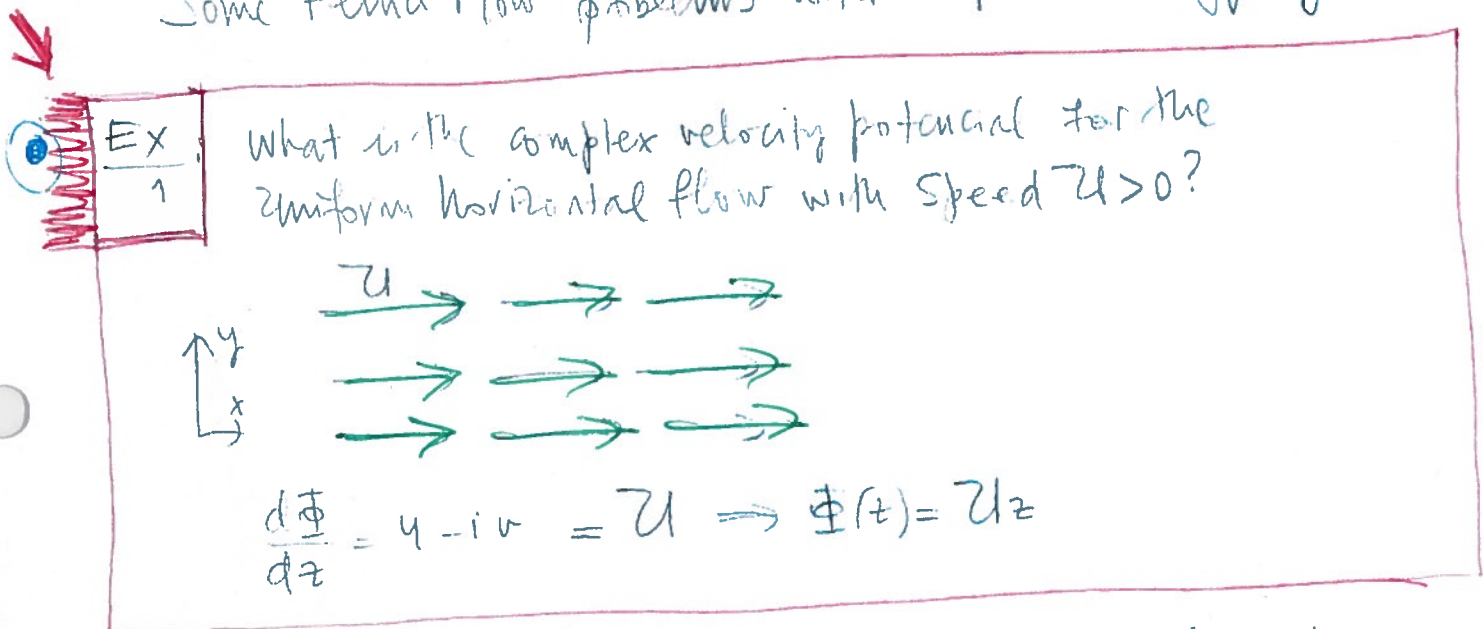 Some Fluid Flow problems
Ex 1
What is the complex velocity potencial for the
uniform horizontal flow with speed U>0?
U
y
x
dΦ/dz = u - iv = U ⇒ Φ(z) = Uz